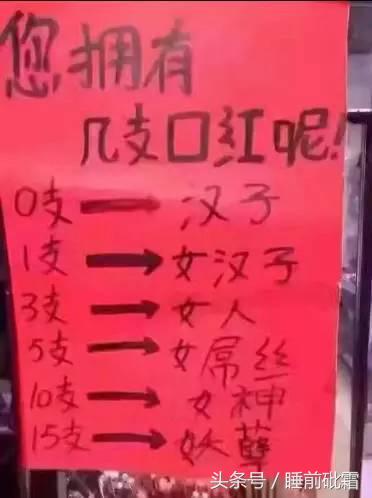 您拥有
几支口红呢!
0支→汉子
1支→女汉子
3支→女人
5支→女屌丝
10支→女神
15支→妖孽
头条号/睡前砒霜